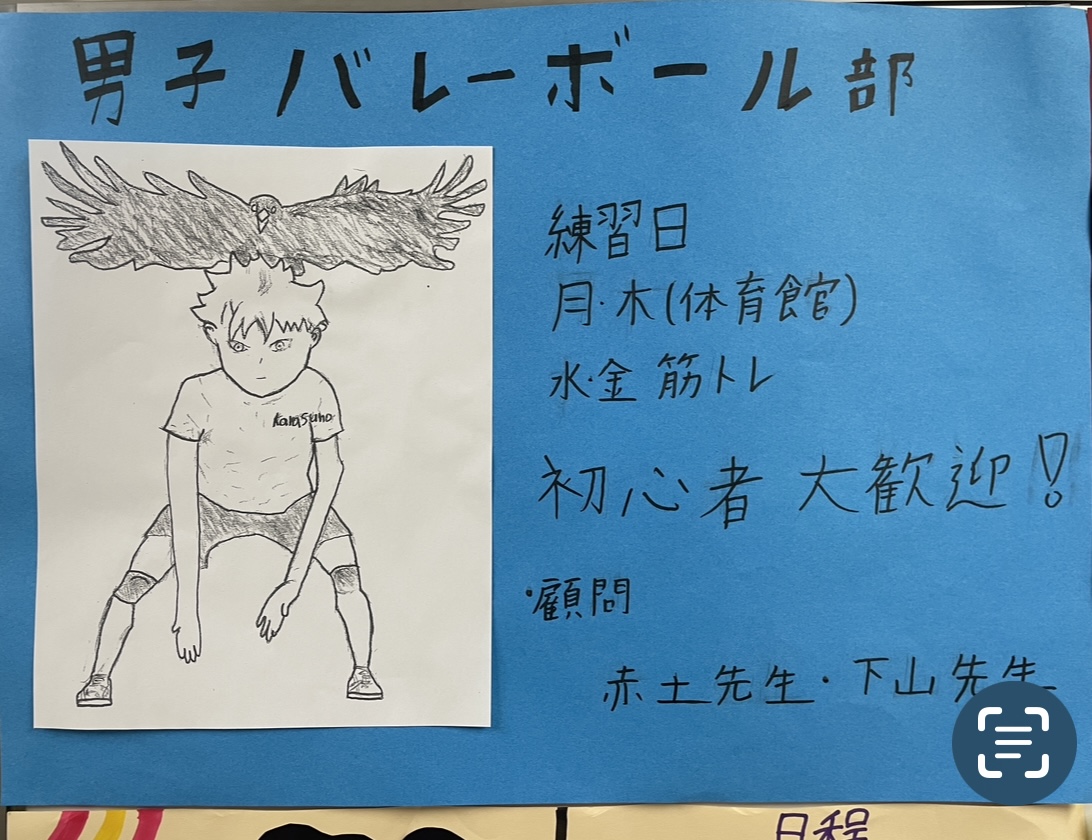 男子バレーボール部
Karasuno
練習日
月・木(体育館)
水・金 筋トレ
初心者 大歓迎!
・顧問
赤土先生・下山先生
日程